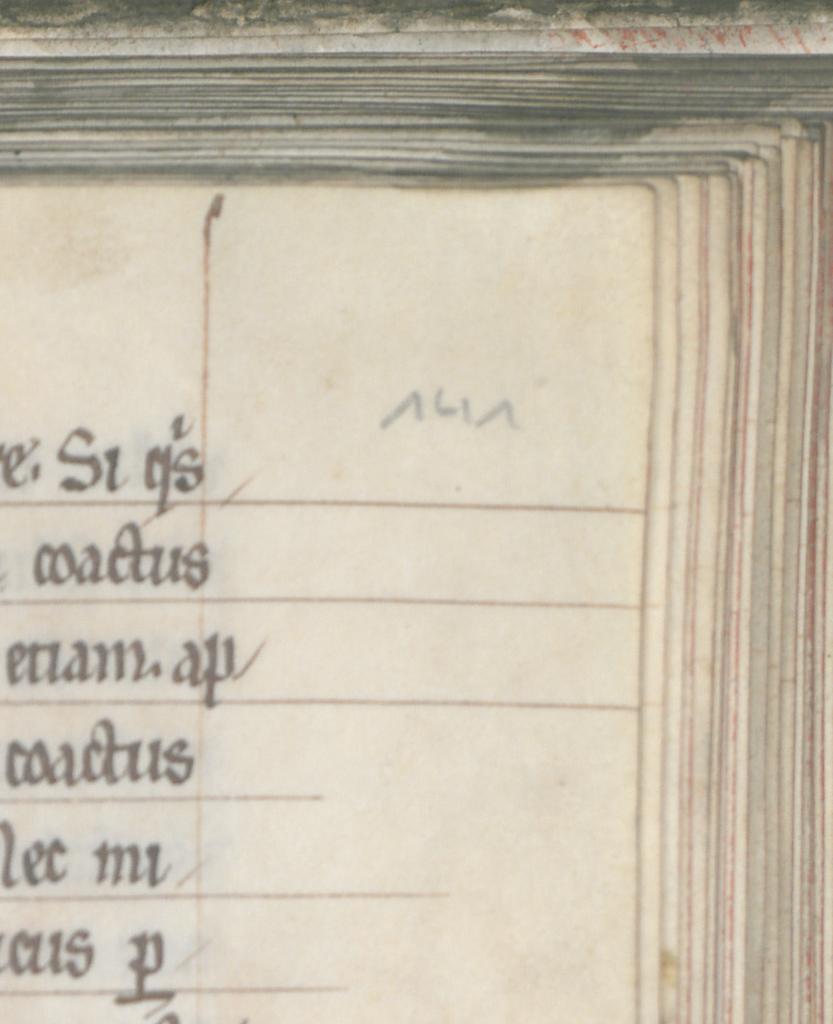 141
Si qͥs
coactus
etiam. ap
coactus
Nec mi
p̲